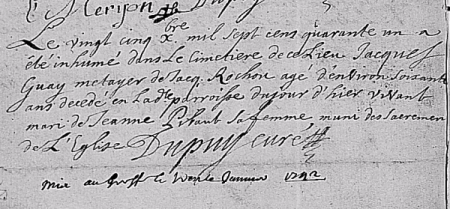 Le vingt cinq Xbre mil sept cens quarante un a
été inhumé dans le cimetiere de ce Lieu Jacques
Guay metayer de Jacq. Rochon agé denviron soixante
ans decedé en lade parroisse du jour d'hier vivant
mari de Jeanne Litaut sa femme muni des sacremen
de L'Eglise Dupuy curé
mis au Greffe le 1742